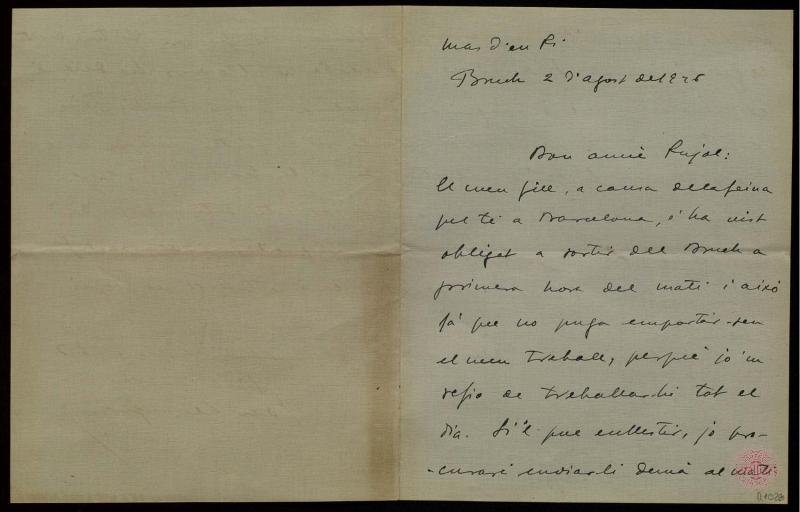 Mas d'en Pi
Bruch 2 d'agost del 1926
Bon amic Pujol:
El meu fill, a causa de la feina
que té a Barcelona, s'ha vist
obligat a sortir del Bruch a
primera hora del matí i això
fa que no puga emportar-sen
el meu treball, perquè jo 'm
refio de treballarhi tot el
dia. Si 'l puc enllestir, jo pro-
-curaré enviarli demà al matí
D.1028